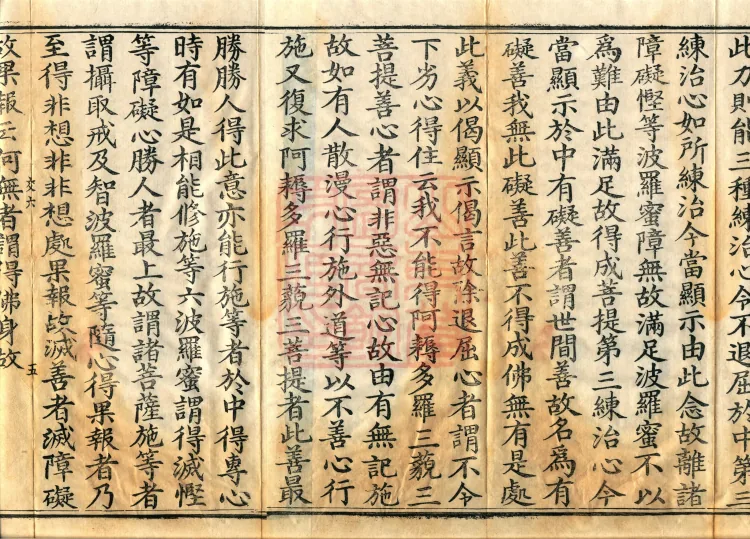 此刀則能三種練治心令不退屈於中第三
練治心如所練治今當顯示由此念故離諸
障礙慳等波羅蜜障無故滿足波羅蜜不以
爲難由此滿足故得成菩提第三練治心今
當顯示於中有礙善者謂世間善故名爲有
礙善我無此礙善此善不得成佛無有是處
此義以偈顯示偈言故除退屈心者謂不令
下劣心得住云我不能得阿耨多羅三藐三
菩提善心者謂非惡無記心故由有無記施
故如有人散漫心行施外道等以不善心行
施又復求阿耨多羅三藐三菩提者此善最
勝勝人得此意亦能行施等者於中得專心
時有如是相能修施等六波羅蜜謂得滅慳
等障礙心勝人者最上故謂諸菩薩施等者
謂攝取戒及智波羅蜜等隨心得果報者乃
至得非想非非想處果報故滅善者滅障礙
故果報云何無者謂得佛身故
五